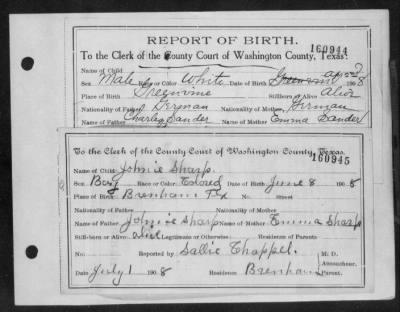 REPORT OF BIRTH.
160944
To the Clerk of the County Court of Washington County, Texas:
Name of Child
Sex Male Race or Color White Date of Birth 1908
Place of Birth Greenvine Stillborn or Alive Alive
Nationality of Father German Nationality of Mother German
Name of Father Charley Sander Name of Mother Emma Sander
To the Clerk of the County Court of Washington County, Texas.
160945
Name of Child Johnie Sharp.
Sex Boy Race or Color Colored Date of Birth June 8 1908
Place of Birth Brenham Tex No. Street
Nationality of Father Nationality of Mother
Name of Father Johnie Sharp Name of Mother Emma Sharp
Still-born or Alive alive Legitimate or Otherwise Residence of Parents
No. Reported by Sallie Chappel. M. D.
Accoucheur.
Date July 1 1908 Residence Brenham Parent.